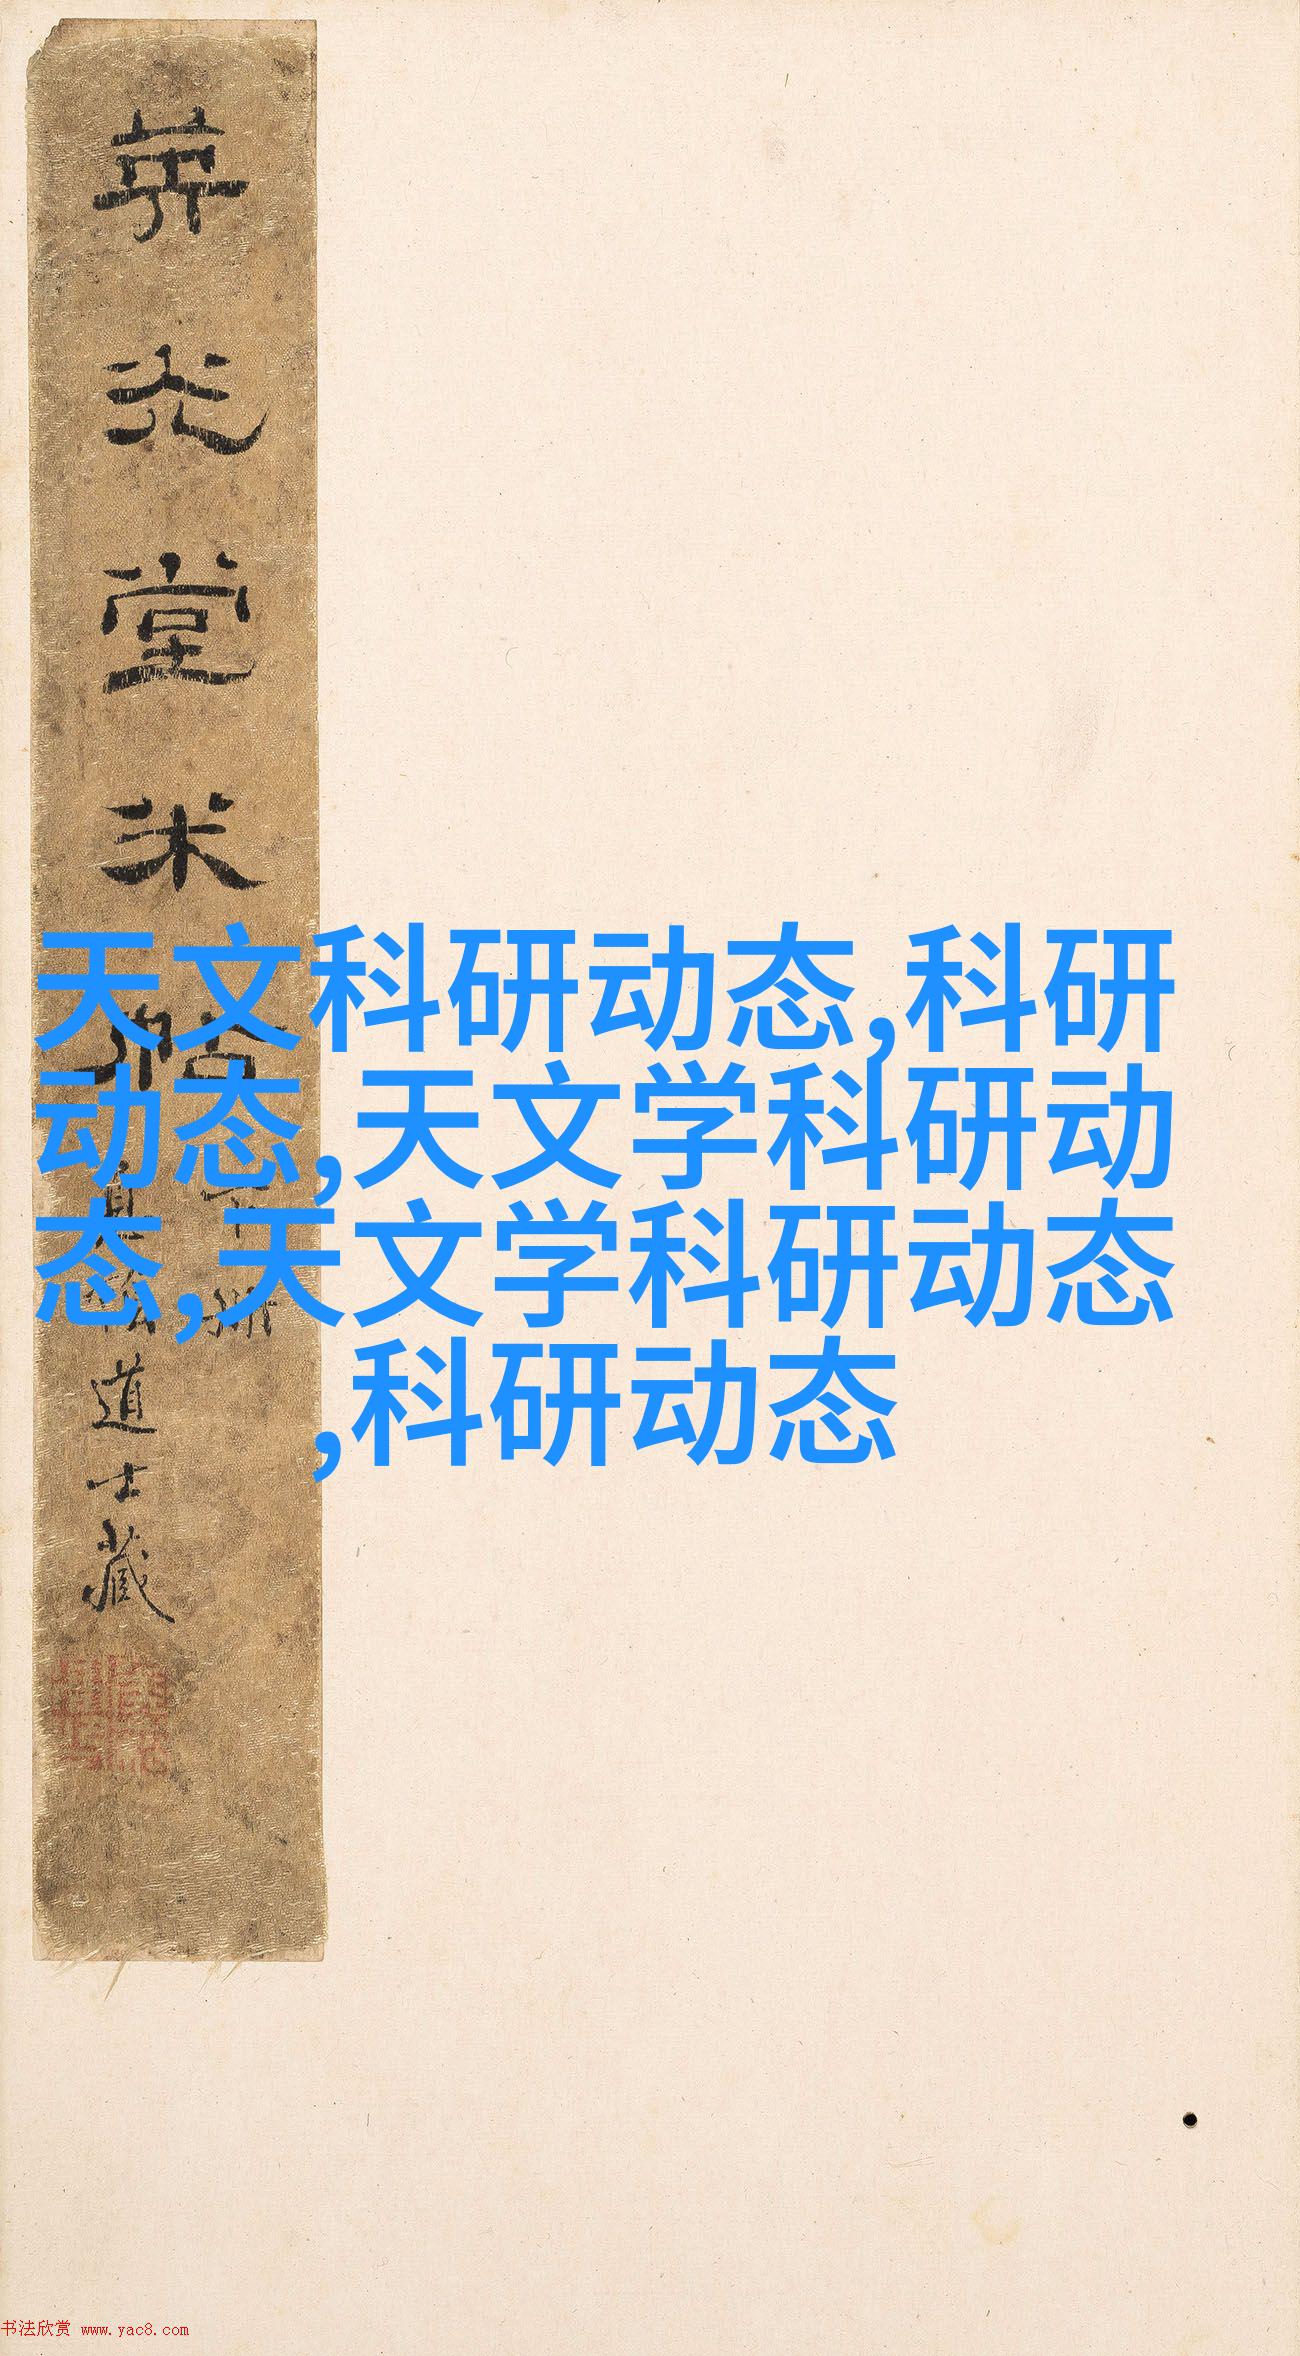 英光堂米
道士藏
天文科研动态,科研
动态,天文学科研动
态,天文学科研动态
,科研动态
书法欣赏 www.yac8.com